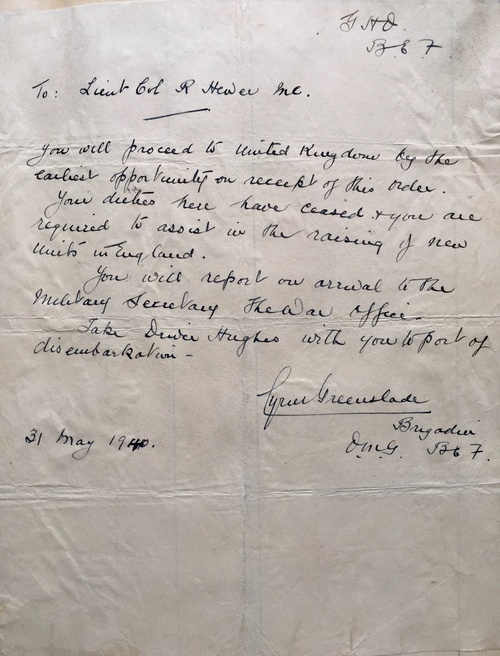 GHQ
BEF
To: Lieut Col R Hewer MC.
You will proceed to United Kingdom by the
earliest opportunity on receipt of this order.
Your duties here have ceased & you are
required to assist in the raising of new
Units in England.
You will report on arrival to the
Military Secretary The War Office.
Take Driver Hughes with you to port of
disembarkation -
Cyrus Greenslade
Brigadier
31 May 1940.
D.M.G. BEF.